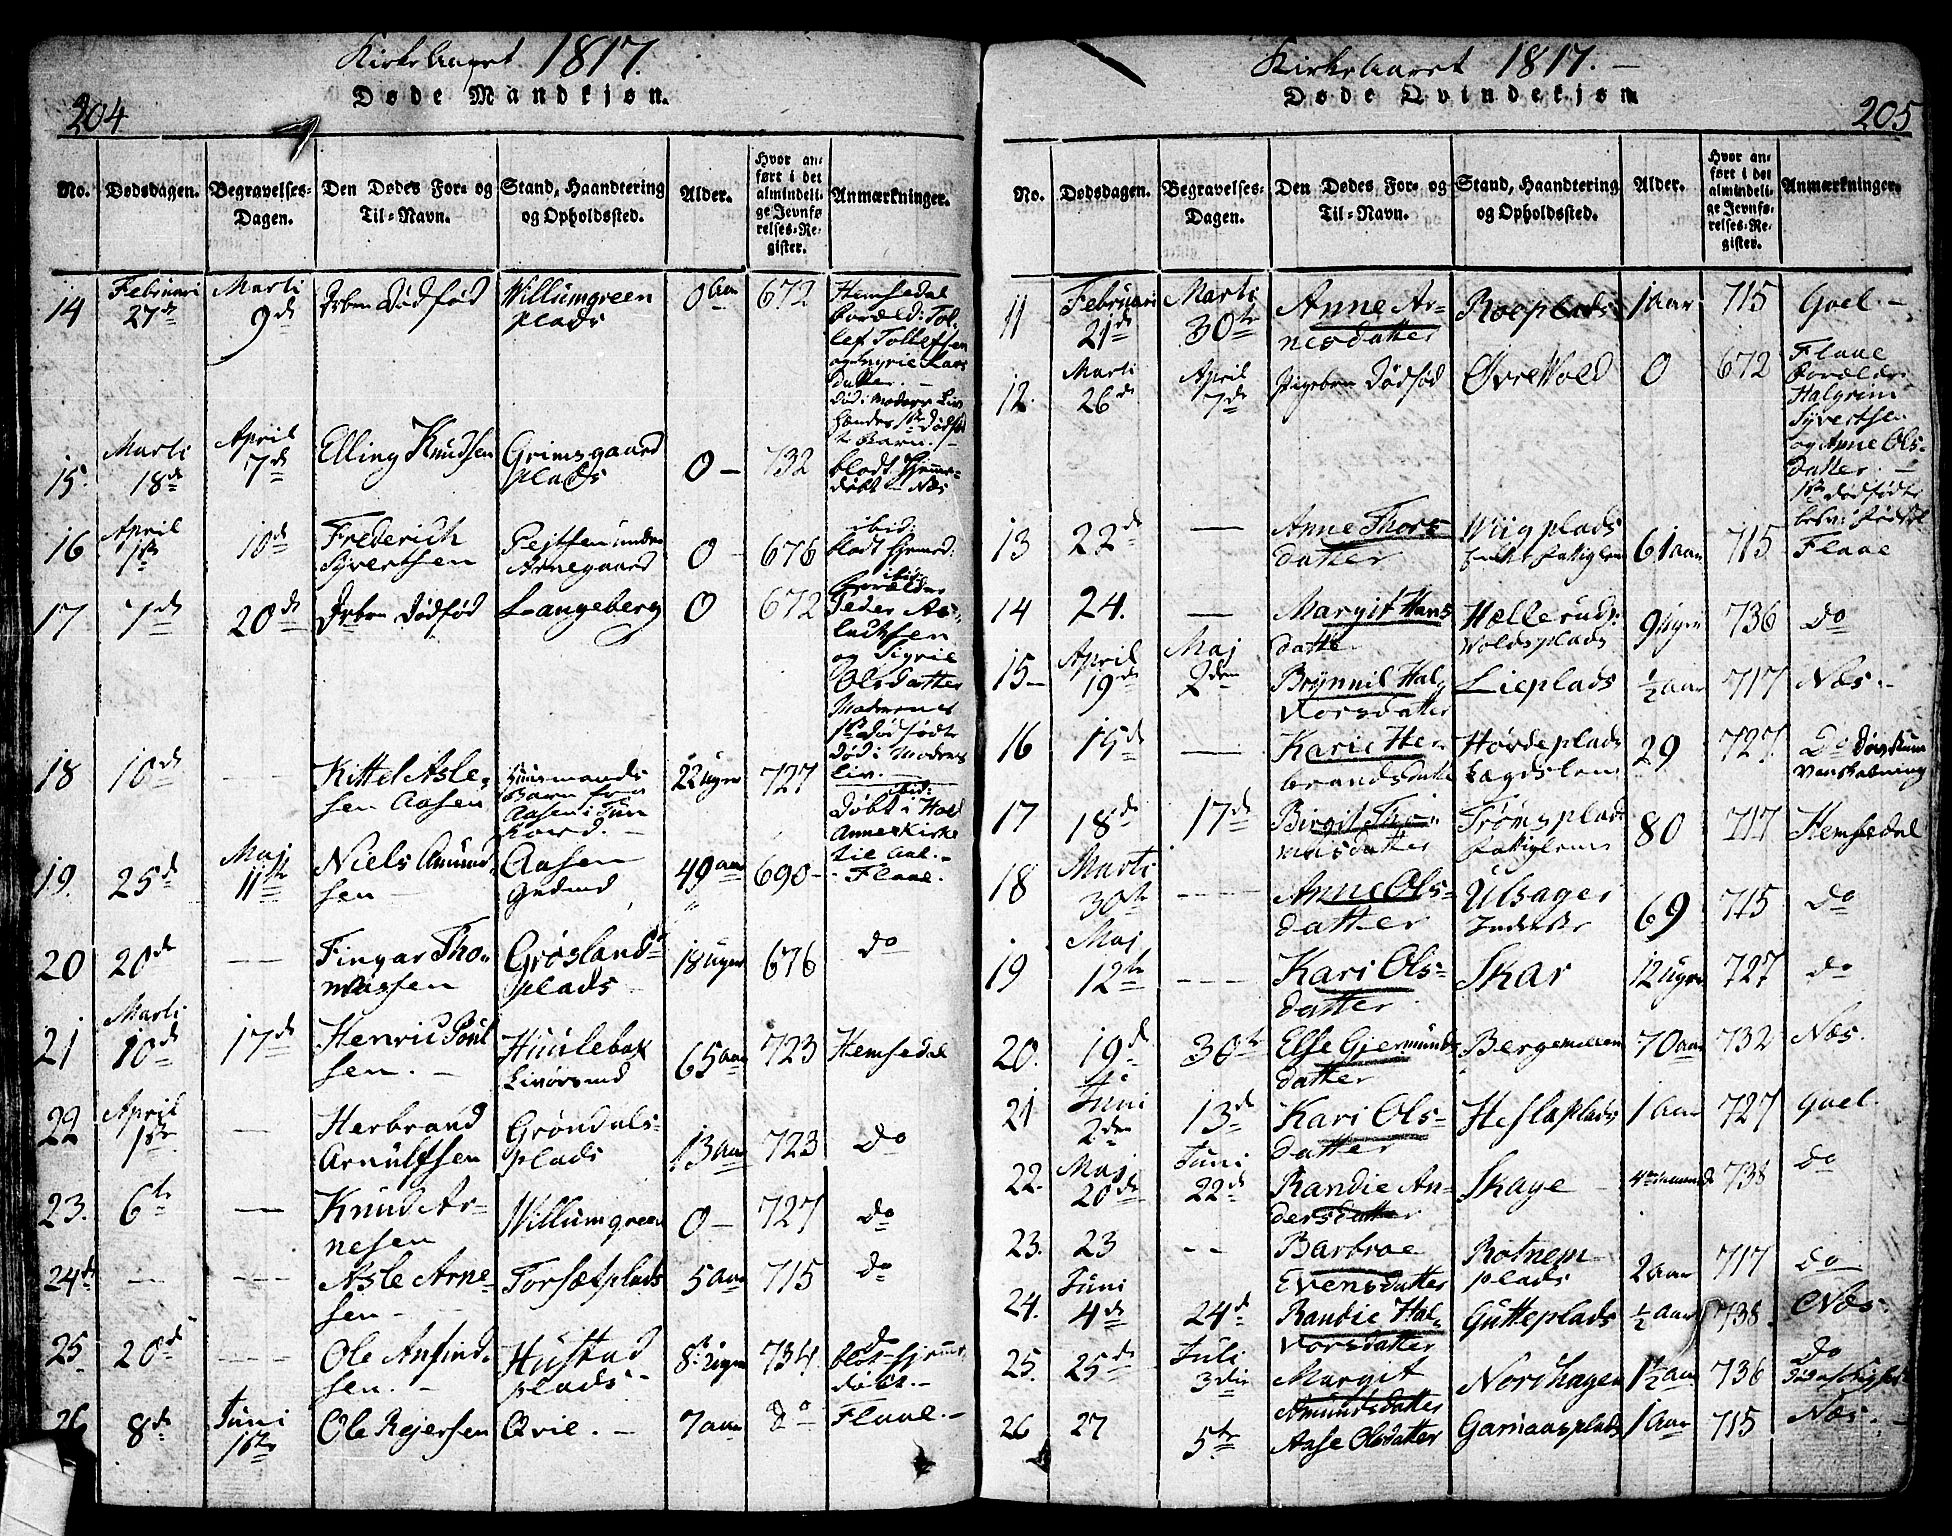 Kirke Aaret 1817.
204
Døde Mandkjøn.
No. Dødsdagen. Begravelses-Dagen. Den Dødes For- og Til-Navn. Stand, Haandtering og Opholdssted. Alder. Hvor anført i det almindelige Jevnførelses-Register. Anmærkninger.
14 Februari 27de Marti 9de Drbrn Dødfød Willumgreen plads 0 Aar 672 Hemsedal
Foræld: Tol
lef Tollefsen
datter. –
Død i Moders Liv
15. Marti 18de April 7de Elling Knudsen Grimsgaard plads 0 – 732 blodt hjemme-
døbt – Næs
16 April 1ste 10de Frederich Syvertsen Pejtsen under Arnegaard 0 676 ibid:
blodt hjemd:
17 7de 20de Drbrn Dødfød Langeberg 0 672 ibid:
Forældre
Peder As-
lachsen
og Sigrie
Olsdatter
Moderens
1ste Dødfødte
Død i Moders
Liv.
18 10de – – – Kittel Asle-
sen Aasen Huusmands
Barn fra
Aasen i 22 Uger 727 ibid:
Døbt i Hol
Annex Kirke
til Aal. –
19. 25de Maj 11te Niels Amund-
sen – Aasen 49 aar 690 – Flaae.
20 20de – – Fingar Tho-
massen Grøsland
plads – 18 Uger 676 do
21 Marti 10de 17de Henric Poul
sen. – Huulebak 65 aar 723 Hemsedal
22 April 1ste – Herbrand
Arnulfsen Grøndals-
plads 13 aar 723 do
23. 6te – Knud Ar-
nesen Willumgreen 0 – 727 do
24de – – – – – Asle Arne-
sen – Forsætplads 5 aar 715 do
25. 20de – – Ole Anfind-
sen. – Hustad
plads – 8te Uger 734. do
blot hjemme
døbt. –
26 8de Juni 1ste Ole Rejersen Qvie. – 7 aar do Flaae. –
Kirke Aaret 1817. –
205
Døde Qvindekjøn
No. Dødsdagen. Begravelses-Dagen. Den Dødes For- og Til-Navn. Stand, Haandtering og Opholdssted. Alder. Hvor anført i det almindelige Jevnførelses-Register. Anmærkninger.
11 Februari 21de Marti 30te Anne Ar-
nesdatter Roeplads 1 aar 715 Goel. –
12. Marti 26de April 7de Pigebrn Dødfød Øvre Vold 0 672 Flaae
Forældre:
Halgrim
Syvertse.
og Anne Ols-
datter. –
1ste Dødfødte
13 22de – Anne Thors
datter Wiigplads 61 aar 715 Flaae
14 24. – Margit Hans
datte Hællerud:
Voldsplads 9 Uger 736 do
15 – April 19de Maj 2den Brynnil Hal-
vorsdatter Lieplads ½ aar 717 Næs. –
16 15de – Karie Her
brandsdatte Hovdeplads
Lægdslem 29 727 Do
17 18de 17de Birgit Tho-
masdatter Trømsplads
fattiglem 80 717 Hemsedal
18 Marti 30te – – – Anne Ols-
datter Ulsager
Inderste 69 715 do
19 Maj 12te – – – Kari Ols-
datter Skar 12 Uger 727 do
20. 19de 30te Else Gjermunds
datter Bergemellem 70 aar 732 Næs.
21 Juni 2den 13de Kari Ols-
datter Heslaplads 1 aar 727 Goel.
22. Maj 20de Juni 22de Randie An-
dersdatter Skage – 738 do
23. 23 – – Barbroe
Evensdatter Rotnem
plads 2 aar 717 do
24. Juni 4de 24de Randie Hal-
vorsdatter Gutteplads ½ aar 738. Næs.
25. 25de Juli 3die Margit
Amundsdatter Nordhagen 1½ aar 736 do
26 27 5te Aase Olsdatter Garnaasplads 1 aar 715 Næs. –